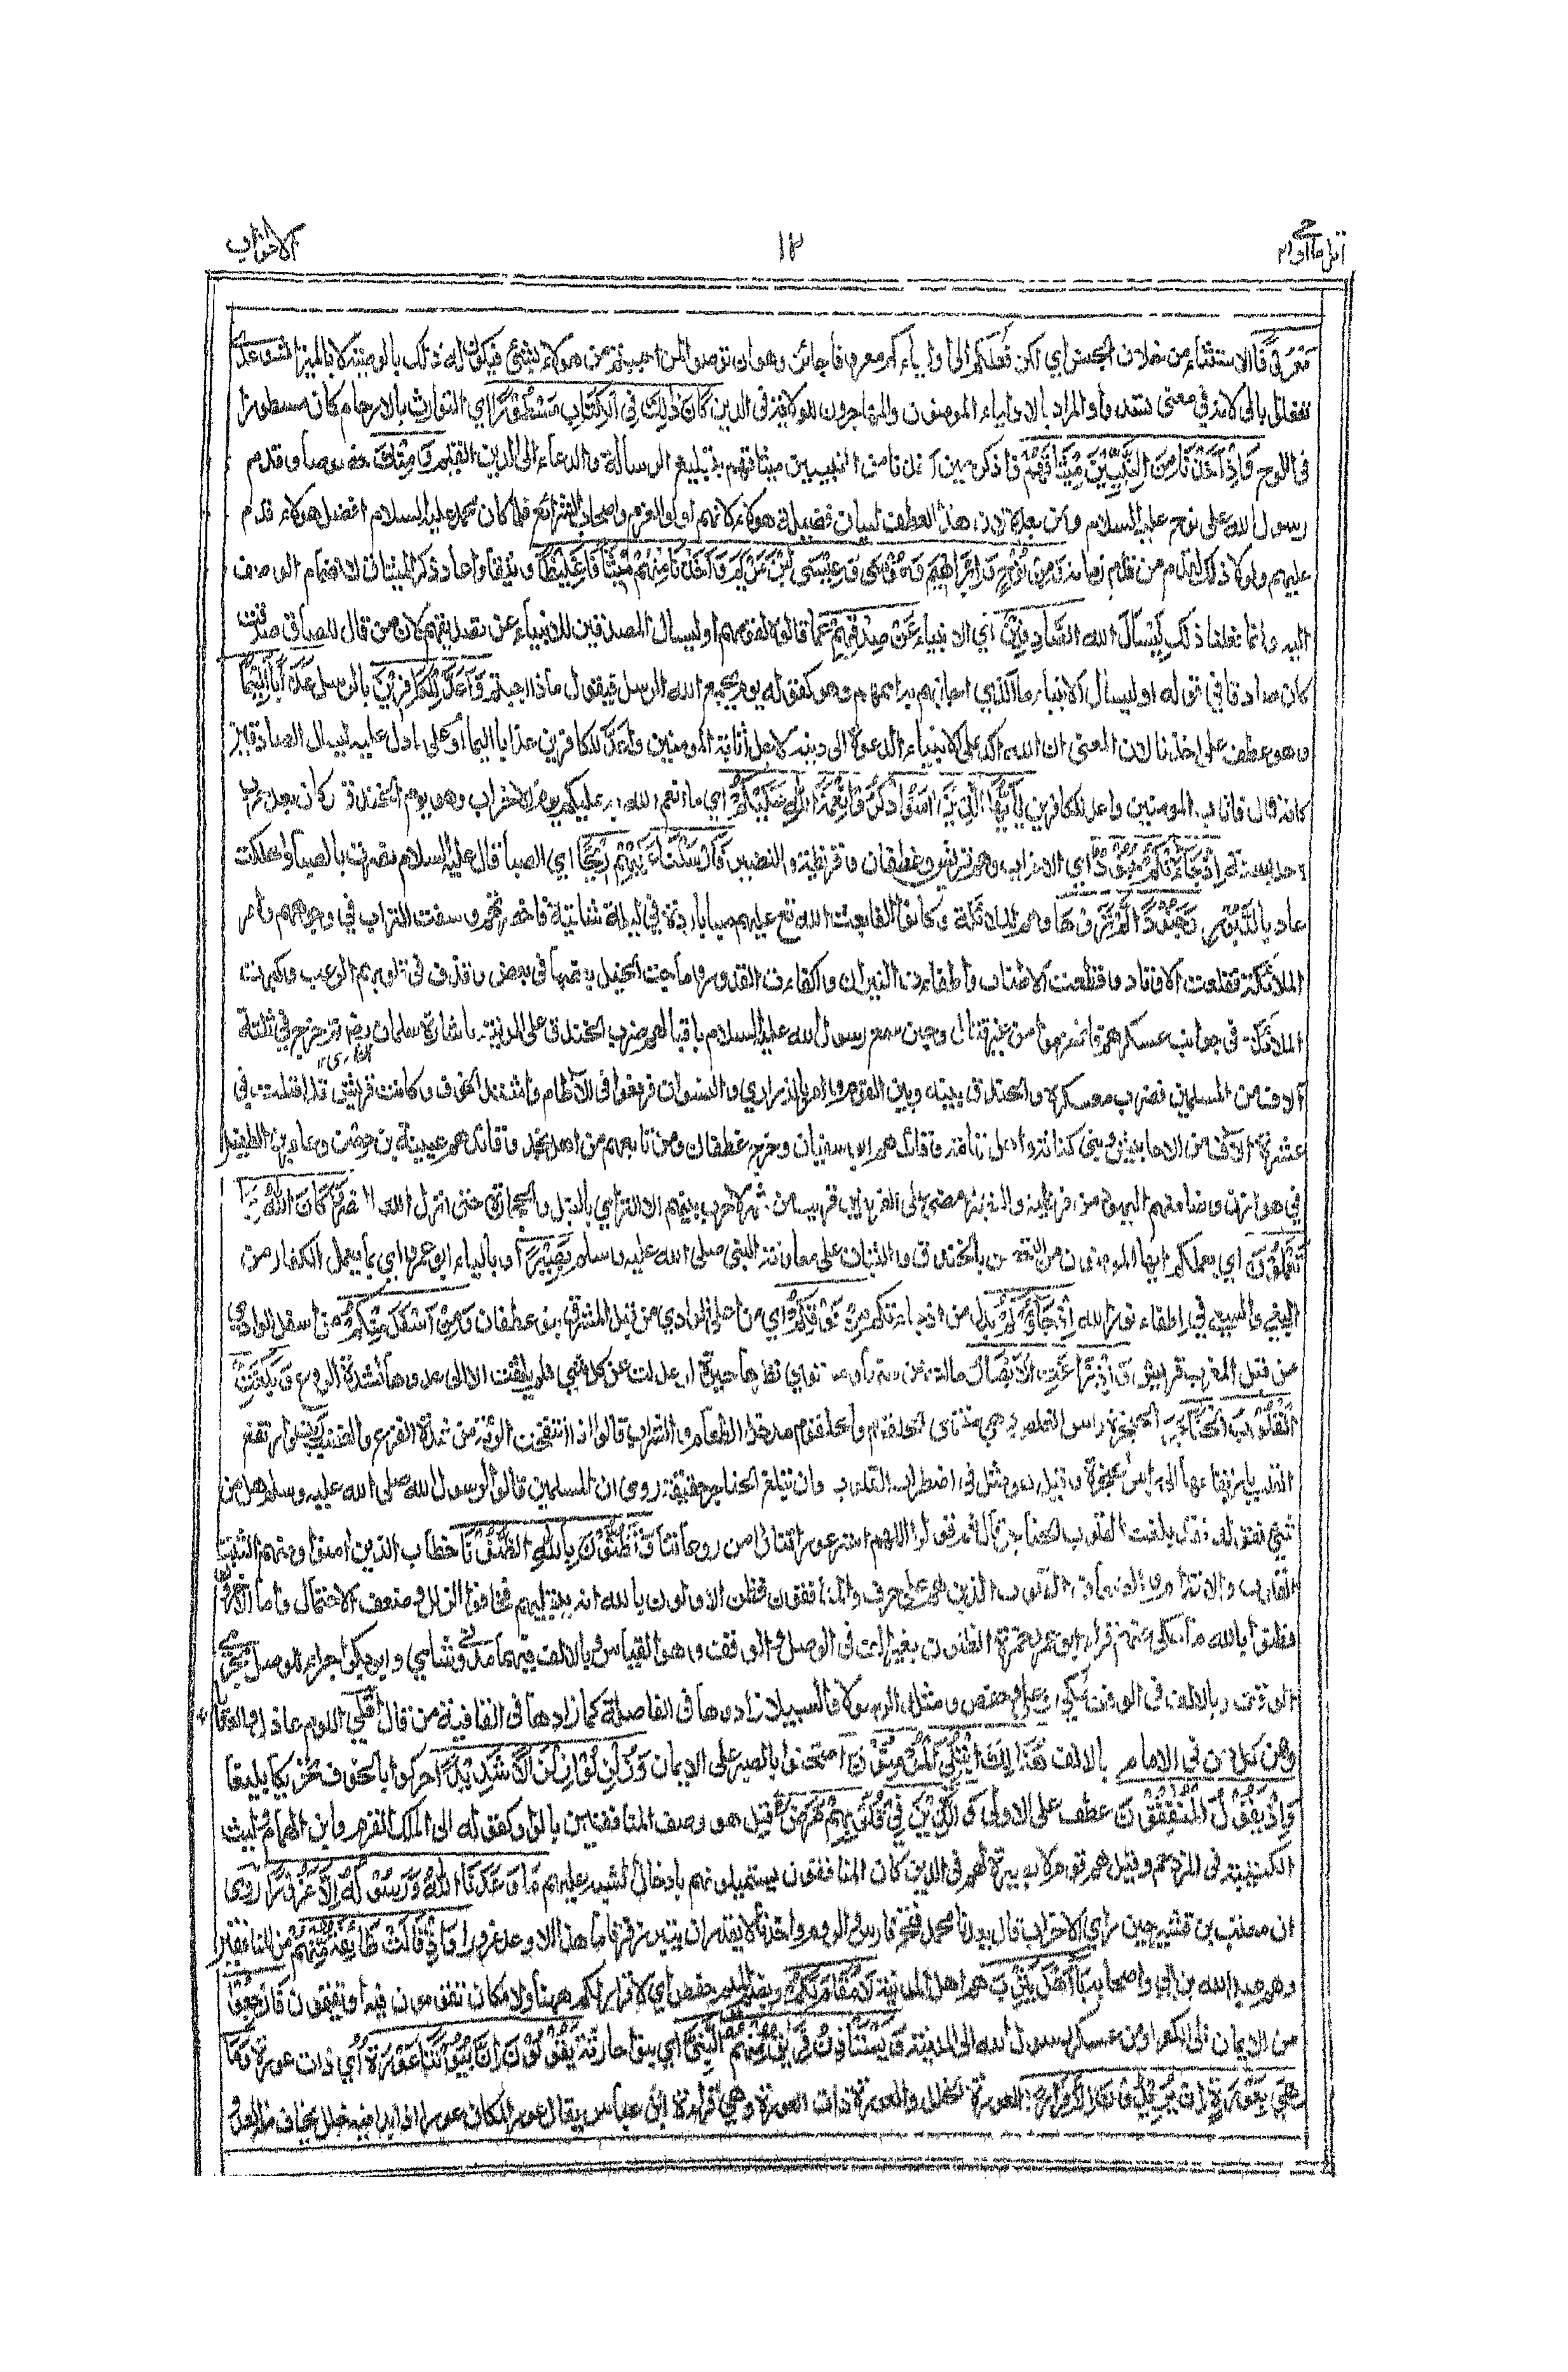 اتل ما اوحي ٢١
١٢
الاحزاب
مَعْرُوفًا الاستثناء من خلاف الجنس اي لكن فعلكم الى اولياءكم معروفا جائز وهو ان توصوا لمن احببتم من هولاء بشيء فيكون له ذلك بالوصية لا بالميراث وعدي
تفعلوا بالى لانه في معنى تسدوا والمراد بالاولياء المومنون والمهاجرون للولاية في الدين كَانَ ذٰلِكَ فِي الْكِتَابِ مَسْطُوْرًا اي التوارث بالارحام كان مسطورا
في اللوح وَاِذْ اَخَذْنَا مِنَ النَّبِيِّيْنَ مِيْثَاقَهُمْ واذكر حين اخذنا من النبيين ميثاقهم بتبليغ الرسالة والدعاء الى الدين القيم وَمِنْكَ خصوصا وقدم
رسول الله على نوح عليه السلام ومن بعده لان هذا العطف لبيان فضيلة هولاء لانهم اولوا العزم واصحاب الشرائع فلما كان محمد عليه السلام افضل هولاء قدم
عليهم ولولا ذلك لقدم من قدمه زمانه وَمِنْ نُوْحٍ وَاِبْرَاهِيْمَ وَمُوْسٰى وَعِيْسَى ابْنِ مَرْيَمَ وَاَخَذْنَا مِنْهُمْ مِيْثَاقًا غَلِيْظًا وثيقا واعاد ذكر الميثاق لانضمام الوصف
اليه وانما فعلنا ذلك لِيَسْاَلَ الله الصَّادِقِيْنَ اي الانبياء عَنْ صِدْقِهِمْ عما قالوه لقومهم او ليسال المصدقين للانبياء عن تصديقهم لان من قال للصادق صدقت
كان صادقا في قوله او ليسال الانبياء ما الذي اجابتهم به اممهم وهو كقوله يوم يجمع الله الرسل فيقول ماذا اجبتم وَاَعَدَّ لِلْكَافِرِيْنَ بالرسل عَذَابًا اَلِيْمًا
وهو عطف على اخذنا لان المعنى ان الله اكد على الانبياء الدعوة الى دينه لاجل اثابة المومنين واعد للكافرين عذابا اليما او على ما دل عليه ليسال الصادقين
كانه قال فاثاب المومنين واعد للكافرين يٰاَيُّهَا الَّذِيْنَ اٰمَنُوا اذْكُرُوْا نِعْمَةَ اللّٰهِ عَلَيْكُمْ اي ما انعم الله به عليكم يوم الاحزاب وهو يوم الخندق وكان بعد حرب
احد بسنة اِذْ جَاءَتْكُمْ جُنُوْدٌ اي الاحزاب وهم قريش وغطفان وقريظة والنضير فَاَرْسَلْنَا عَلَيْهِمْ رِيْحًا اي الصبا قال عليه السلام نصرت بالصبا واهلكت
عاد بالدبور وَجُنُوْدًا لَّمْ تَرَوْهَا وهم الملائكة وكانوا الفا بعث الله تع عليهم صبا باردة في ليلة شاتية فاخصرتهم وسفت التراب في وجوههم وامر
الملائكة فقلعت الاوتاد وقطعت الاطناب واطفأت النيران واكفأت القدور وماجت الخيل بعضها في بعض وقذف في قلوبهم الرعب وكبرت
الملائكة في جوانب عسكرهم فانهزموا من غير قتال وحين سمع رسول الله عليه السلام باقبالهم ضرب الخندق على المدينة باشارة سلمان رضه ثم خرج في ثلثة
الفارسي
آلاف من المسلمين فضرب معسكره والخندق بينه وبين القوم وامر بالذراري والنسوان فرفعوا في الآطام واشتد الخوف وكانت قريش قد اقبلت في
عشرة آلاف من الاحابيش وبني كنانة واهل تهامة وقائدهم ابو سفيان وخرج غطفان ومن تابعهم من اهل نجد وقائدهم عيينة بن حصن وعامر بن الطفيل
في هوازن وضامتهم اليهود من قريظة والنضير ومضى على الفريقين قريب من شهر لا حرب بينهم الا الترامي بالنبل والحجارة حتى انزل الله النصر وَكَانَ اللّٰهُ بِمَا
تَعْمَلُوْنَ اي بعملكم ايها المومنون من التحصن بالخندق والثبات على معاونة النبي صلى الله عليه وسلم بَصِيْرًا وبالياء ابو عمرو اي بما يعمل الكفار من
البغي والسعي في اطفاء نور الله اِذْ جَاءُوْكُمْ بدل من اذ جاءتكم مِنْ فَوْقِكُمْ اي من اعلى الوادي من قبل المشرق بنو غطفان وَمِنْ اَسْفَلَ مِنْكُمْ من اسفل الوادي
من قبل المغرب قريش وَاِذْ زَاغَتِ الْاَبْصَارُ مالت عن سننها ومستوى نظرها حيرة او عدلت عن كل شيء فلم يلتفت الا الى عدوها لشدة الروع وَبَلَغَتِ
الْقُلُوْبُ الْحَنَاجِرَ الحنجرة راس الغلصمة وهي منتهى الحلقوم والحلقوم مدخل الطعام والشراب قالوا اذا انتفخت الرئة من شدة الفزع والغضب ربت وارتفع
القلب بارتفاعها الى راس الحنجرة وقيل هو مثل في اضطراب القلوب وان لم تبلغ الحناجر حقيقة روى ان المسلمين قالوا لرسول الله صلى الله عليه وسلم هل من
شيء نقوله فقد بلغت القلوب الحناجر قال نعم قولوا اللهم استر عوراتنا وامن روعاتنا وَتَظُنُّوْنَ بِاللّٰهِ الظُّنُوْنَا خطاب الذين امنوا ومنهم الثبت
القلوب والاقدام والضعاف القلوب الذين هم على حرف والمنافقون فظن الاولون بالله انه يبتليهم فخافوا الزلل وضعف الاحتمال واما الآخرون
فظنوا بالله ما حكى عنهم قرا ابو عمرو وحمزة الظنون بغير الف في الوصل والوقف وهو القياس وبالالف فيهما مدني وشامي وابو بكر اجراء للوصل مجرى
الوقف وبالالف في الوقف مكي وعلي وحفص ومثله الرسولا والسبيلا زادوها في الفاصلة كما زادها في القافية من قال اقلي اللوم عاذل والعتابا
وهن كلهن في الامام بالالف هُنَالِكَ ابْتُلِيَ الْمُؤْمِنُوْنَ امتحنوا بالصبر على الايمان وَزُلْزِلُوْا زِلْزَالًا شَدِيْدًا حركوا بالخوف تحريكا بليغا
وَاِذْ يَقُوْلُ الْمُنٰفِقُوْنَ عطف على الاولى وَالَّذِيْنَ فِيْ قُلُوْبِهِمْ مَرَضٌ قيل هو وصف المنافقين بالواو كقوله الى الملك القرم وابن الهمام وليث
الكتيبة في المزدحم وقيل هم قوم لا بصيرة لهم في الدين كان المنافقون يستميلونهم بادخال الشبه عليهم مَا وَعَدَنَا اللّٰهُ وَرَسُوْلُهُ اِلَّا غُرُوْرًا روى
ان معتب بن قشير حين راى الاحزاب قال يعدنا محمد فتح فارس والروم واحدنا لا يقدر ان يتبرز فرقا ما هذا الا وعد غرور وَاِذْ قَالَتْ طَائِفَةٌ مِنْهُمْ من المنافقين
وهم عبد الله بن ابي واصحابه يٰاَهْلَ يَثْرِبَ هم اهل المدينة لَا مُقَامَ لَكُمْ وبضم الميم حفص اي لا قرار لكم ههنا ولا مكان تقومون فيه او تقيمون فَارْجِعُوْا
من الايمان الى الكفر او من عسكر رسول الله الى المدينة وَيَسْتَأْذِنُ فَرِيْقٌ مِنْهُمُ النَّبِيَّ اي بنو حارثة يَقُوْلُوْنَ اِنَّ بُيُوْتَنَا عَوْرَةٌ اي ذات عورة وَمَا
هِيَ بِعَوْرَةٍ اِنْ يُرِيْدُوْنَ اِلَّا فِرَارًا العورة الخلل والعورة ذات العورة وهي قراءة ابن عباس يقال عور المكان عورا اذا بدا فيه خلل يخاف منه العدو